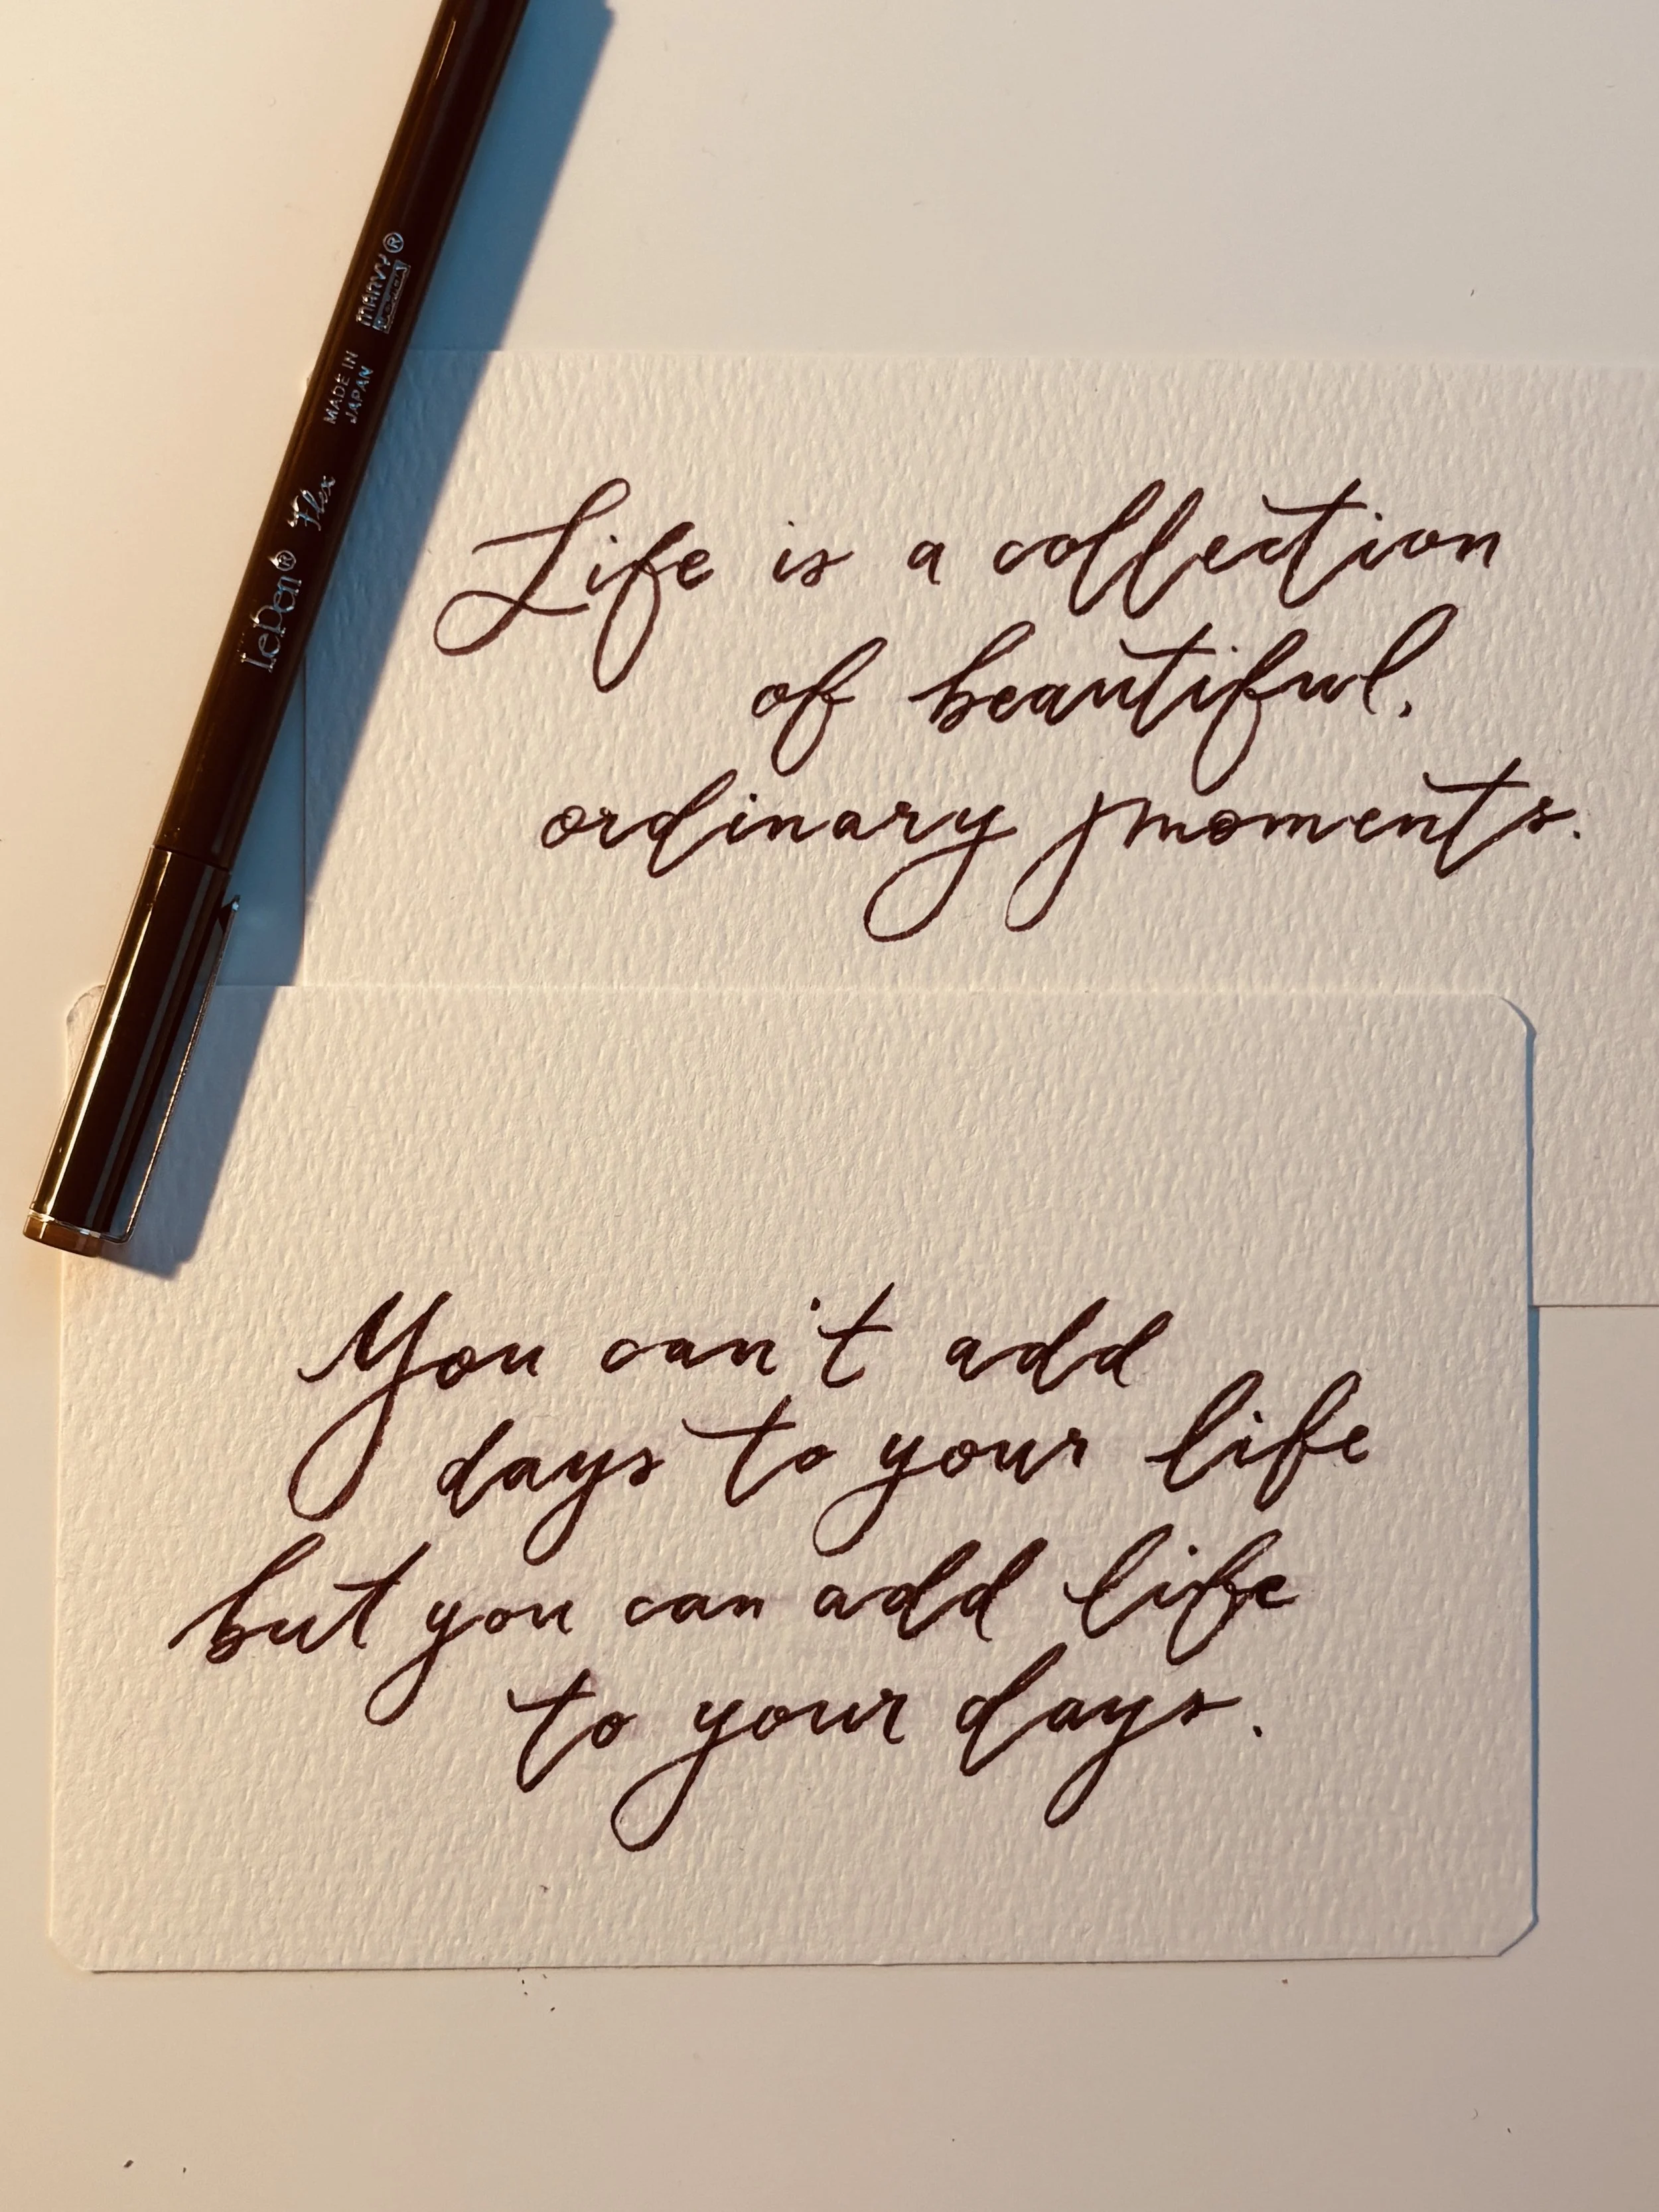 MARVY®
MADE IN
JAPAN
LePen® Flex
Life is a collection
of beautiful,
ordinary moments.
You can't add
days to your life
but you can add life
to your days.